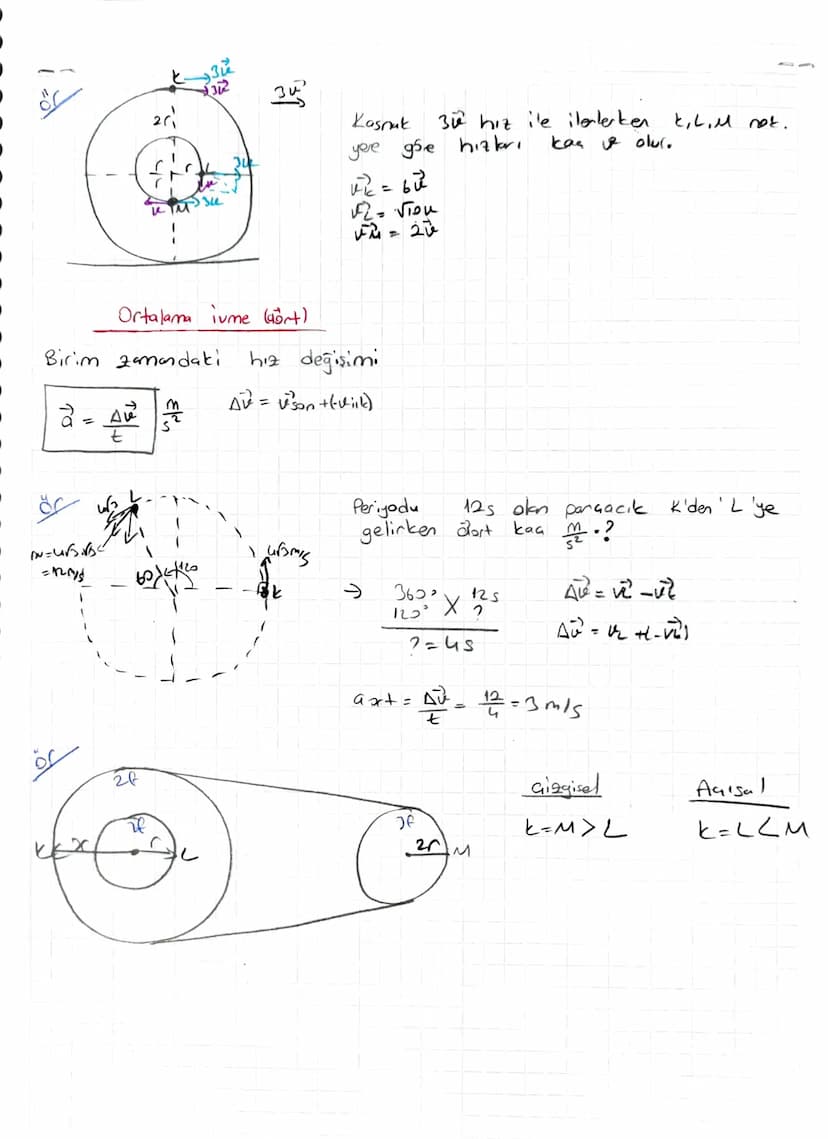 ör
K 3v
3v
3v
2r
r r L 3v
r v
v M 3v
Kasnak 3v hız ile ilerlerken K, L, M nok.
yere göre hızları kaç v olur.
vK = 6v
vL = √10v
vM = 2v
Ortalama ivme (aort)
Birim zamandaki hız değişimi
a = Δv/t m/s²
Δv = vson + (-vilk)
ör
L
4√3
4√3 m/s
= 12 m/s
60 120
K
Periyodu 12s olan parçacık K'den L'ye
gelirken aort kaç m/s² ?
→ 360° 12s
120° ?
? = 4s
Δv = vL - vK
axt = Δv/t = 12/4 = 3 m/s
ör
2f
2f
K r L
3f
2r M
Çizgisel
K = M > L
Açısal
K = L < M